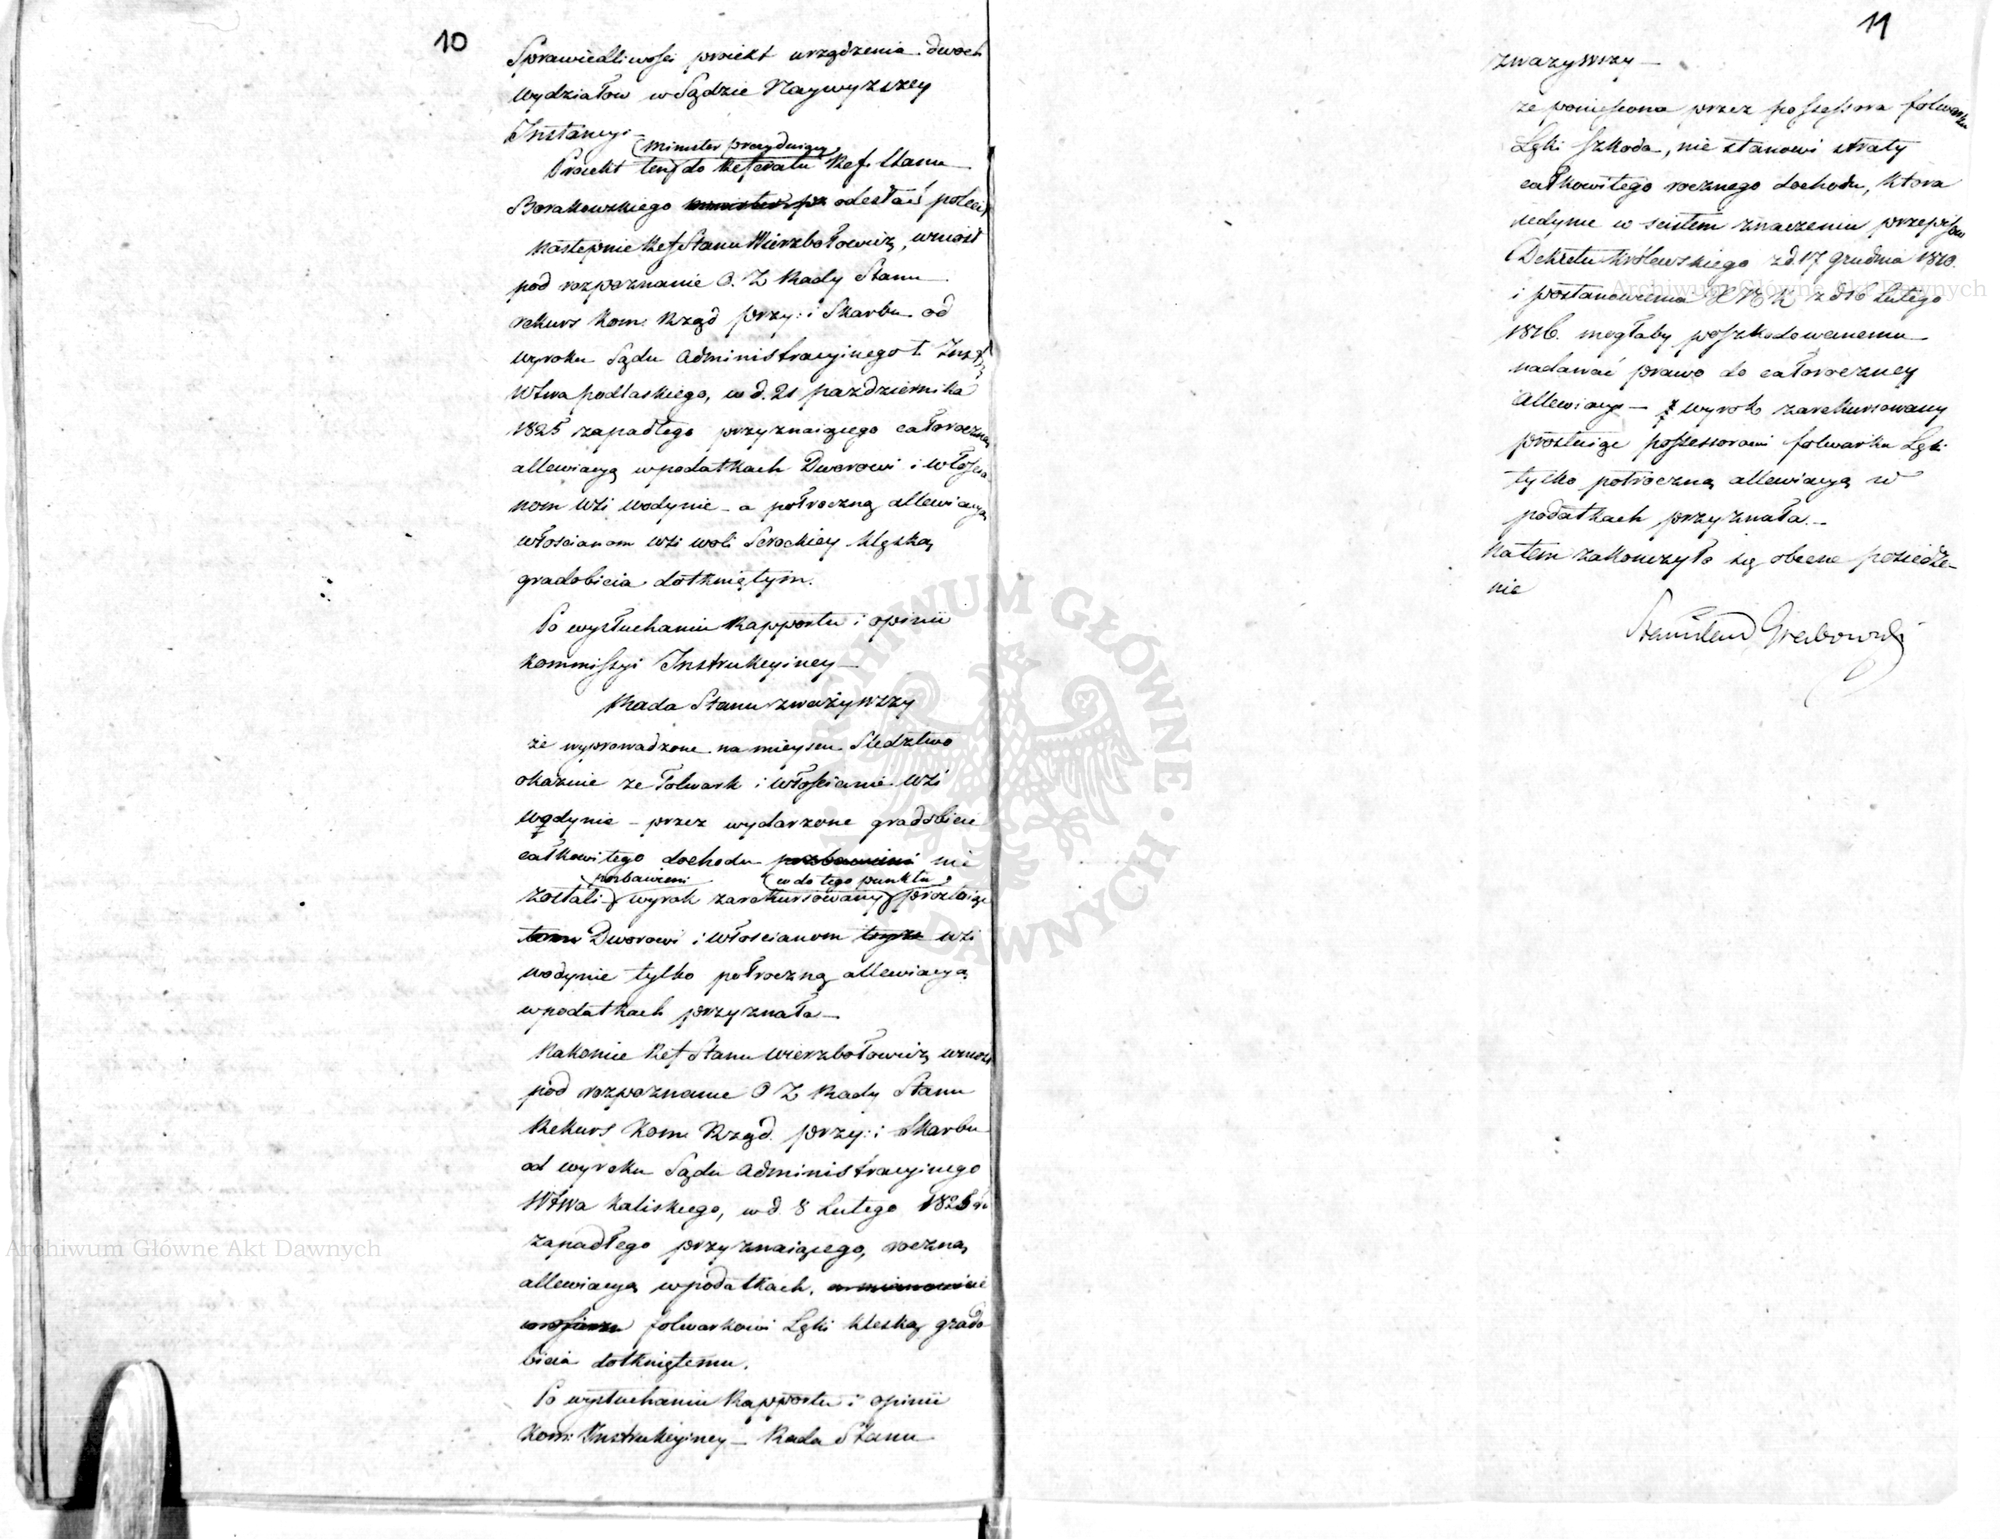 10
Sprawiedliwości proiekt urządzenia dwoch
Wydziałow w Sądzie Naywyzszey
Instancyi
Minister prezyduiący
Proiekt ten do Referatu Ref. Stanu
Borakowskiego odesłać polecił
Następnie Ref Stanu Wierzbołowicz, wniosł
pod rozpoznanie O. Z Rady Stanu
rekurs Kom. Rząd przy: i Skarbu od
wyroku Sądu Administracyinego I. Inst.
Wtwa Podlaskiego, w d. 21 pazdziernika
1825 zapadłego przyznaiącego całoroczną
allewiacyą w podatkach Dworowi i włościa
nom wsi Wodynie – a połroczną allewiacyą
włoscianom wsi Woli Serockiey klęską
gradobicia dotkniętym.
Po wysłuchaniu Rapportu i opinii
Kommissyi Instrukcyiney –
Rada Stanu zważywszy
że wyprowadzone na mieyscu Sledztwo
okazuie ze Folwark i Włoscianie wsi
Wodynie – przez wydarzone gradobicie
całkowitego dochodu pozbawieni nie
pozbawieni co do tego punktu
zostali – wyrok zarekursowany prostuiąc
Dworowi i Włoscianom wsi
Wodynie tylko połroczną allewiacyą
w podatkach przyznała –
Nakoniec Ref Stanu Wierzbołowicz wniosł
pod rozpoznanie O Z Rady Stanu
Rekurs Kom Rząd. przy: i Skarbu
od wyroku Sądu Administracyinego
Wtwa Kaliskiego, w d. 8 Lutego 1825
zapadłego przyznaiącego, roczną
allewiacyą w podatkach, a mianowicie
folwarkowi Łęki klęską grado
bicia dotkniętemu.
Po wysłuchaniu Rapportu i opinii
Kom: Instrukcyiney – Rada Stanu
11
zwazywszy –
ze poniesiona przez possessora folwarku
Łęki szkoda, nie stanowi straty
całkowitego rocznego dochodu, ktora
iedynie w scisłem znaczeniu przepisow
Dekretu Królewskiego z d. 17 Grudnia 1810.
i postanowienia z d 16 Lutego
1816. mogłaby poszkodowanemu
nadawać prawo do całoroczney
Allewiacyi – wyrok zarekursowany
prostuiąc possessorowi folwarku Łęki
tylko połroczną allewiacyą w
podatkach przyznała. –
Natem zakonczyło się obecne posiedze–
nie
Stanisław Grabowski
Archiwum Główne Akt Dawnych
Archiwum Główne Akt Dawnych
ARCHIWUM GŁÓWNE AKT DAWNYCH